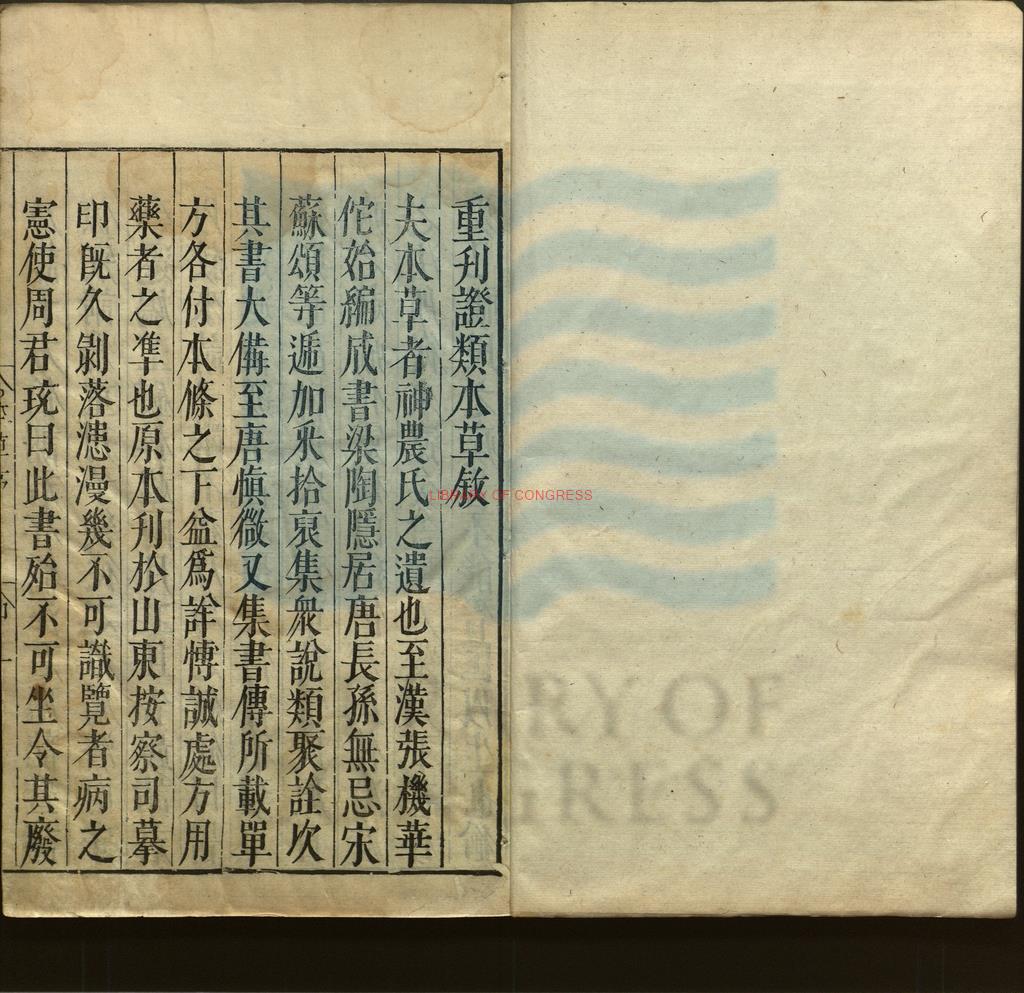 重刋證類本草敘
夫本草者神農氏之遺也至漢張機華
佗始編成書梁陶隱居唐長孫無忌宋
蘇頌等遞加采拾裒集衆說類聚詮次
其書大備至唐愼微又集書傳所載單
方各付本條之下益爲詳愽誠處方用
藥者之準也原本刋於山東按察司摹
印旣久剝落漶漫幾不可識覽者病之
憲使周君珫曰此書殆不可坐令其廢
LIBRARY OF CONGRESS